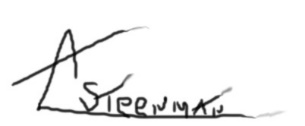 A Steenman